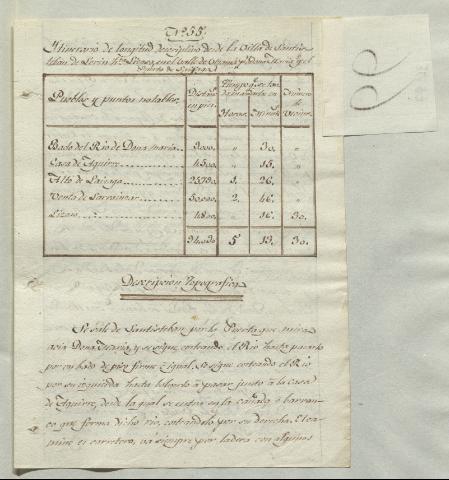 Nº 55.
Itinerario de longitud, descriptivo desde la Villa de Santis-
teban de Lerin hta Lizaso, en el valle de
Pueblos y puntos notables. Distanc. en pies. Tiempo qe se tarda Número de Vecinos
Horas. Minuts.
Bado del Rio de Dona maria.. 9000. " 30. "
Casa de Aguirre........ 4500. " 15. "
Alto de Laiaga........ 25730. 1. 26. "
Venta de Sarrainzar.... 50000. 2. 46. "
Lizaso...... 4800. " 16. 30.
94030 5 13. 30.
Descripcion Topografica
Se sale de Santisteban por la Puerta que mira
acia Dona Maria, y se sigue costeando el Rio hasta pasarlo
por un bado de piso firme e igual, Se sigue costeando el Rio
por su izquierda hasta bolberlo à pasar junto à la casa
de Aguirre, desde la qual se entra en la cañada ò barran-
co que forma dicho rio, costeandolo por su derecha. El ca-
mino es carretero, và siempre por ladera con algunos